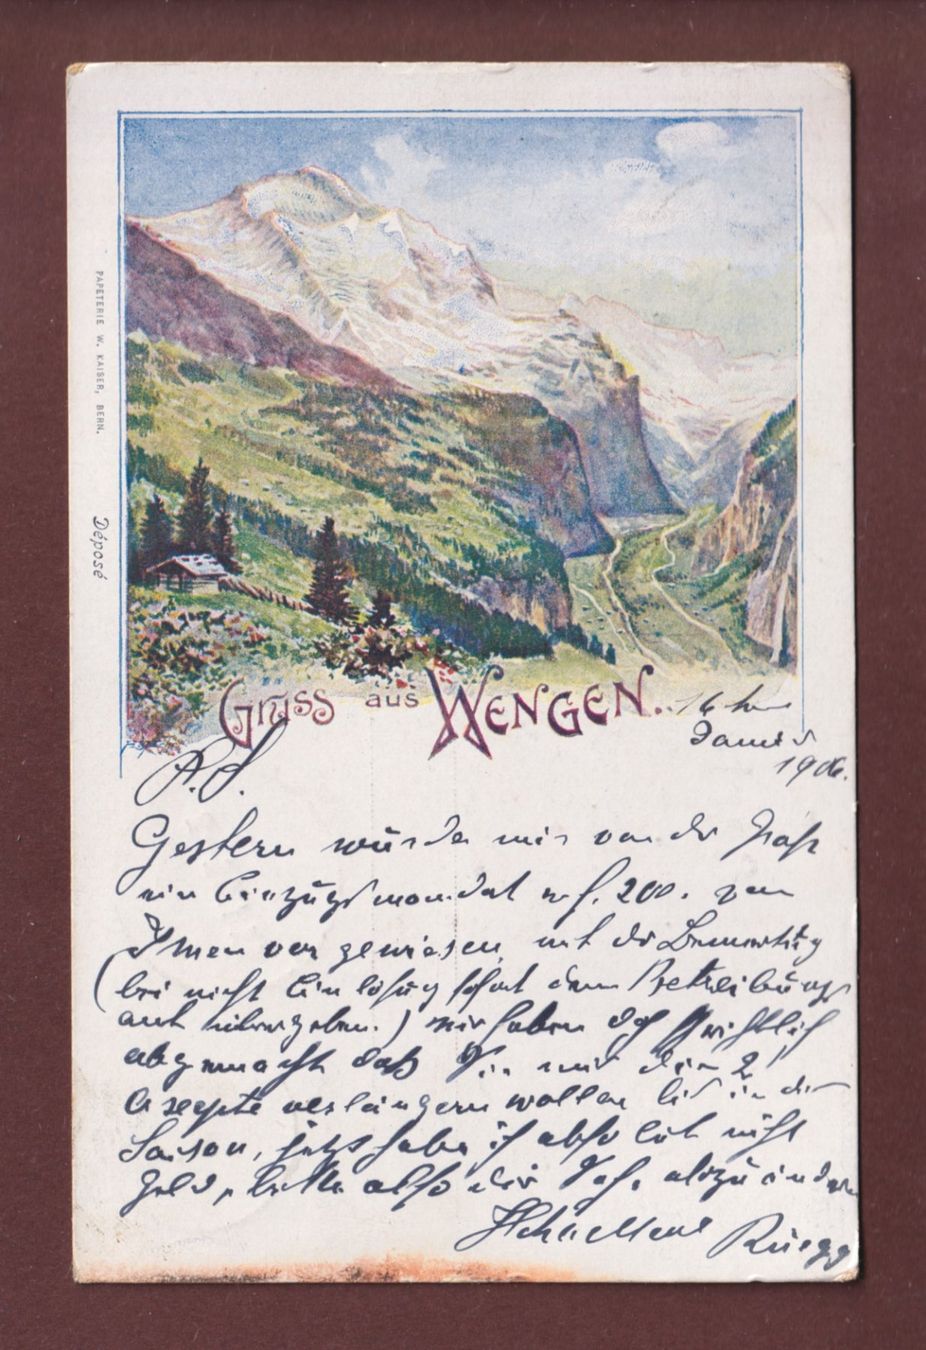 PAPETERIE W. KAISER, BERN.
Déposé
Gruss aus WENGEN.
16
1906.
P.S.
Gestern wurde mir von der Post
ein Einzugsmandat v. f. 200. von
Ihnen vorgewiesen, mit der Bemerkung
(bei nicht Einlösung sofort dem Betreibungs
amt übergeben.) wir haben doch schriftlich
abgemacht daß Sie mir die 2
Accepte verlängern wollen bis in die
Saison, jetzt habe ich absolut nicht
Geld, bitte also die Sache abzuändern
Rüegg